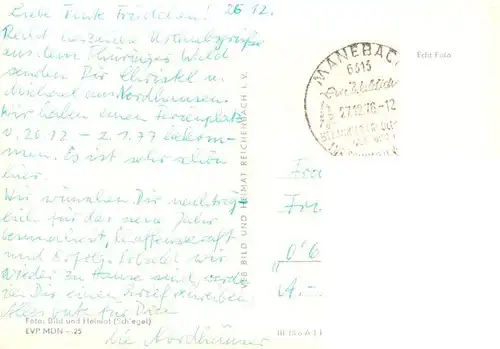 Liebe Frau Friedchen! 26 12.
Recht unseren Urlaubsgrüße
aus dem Thüringer Wald
senden Dir Christel u.
Michael aus Nordhausen.
Wir haben einen Ferienplatz
v. 26.12 – 2.1.77 bekom-
men. Es ist sehr schön
hier.
Wir wünschen Dir nachträg-
lich für das neue Jahr
Schaffenskraft
und Erfolg. Sobald wir
wieder zu Hause sind, werde
ich Dir einen Brief schreiben.
Alles Gute für Dich
die Nordhäuser
Foto: Bild und Heimat (Schlegel)
EVP MDN –.25
VEB BILD UND HEIMAT REICHENBACH i. V.
Echt Foto
MANEBACH
6315
27.12.76-12
Frau
Fri
"06
A.-
III 18 6 A 1